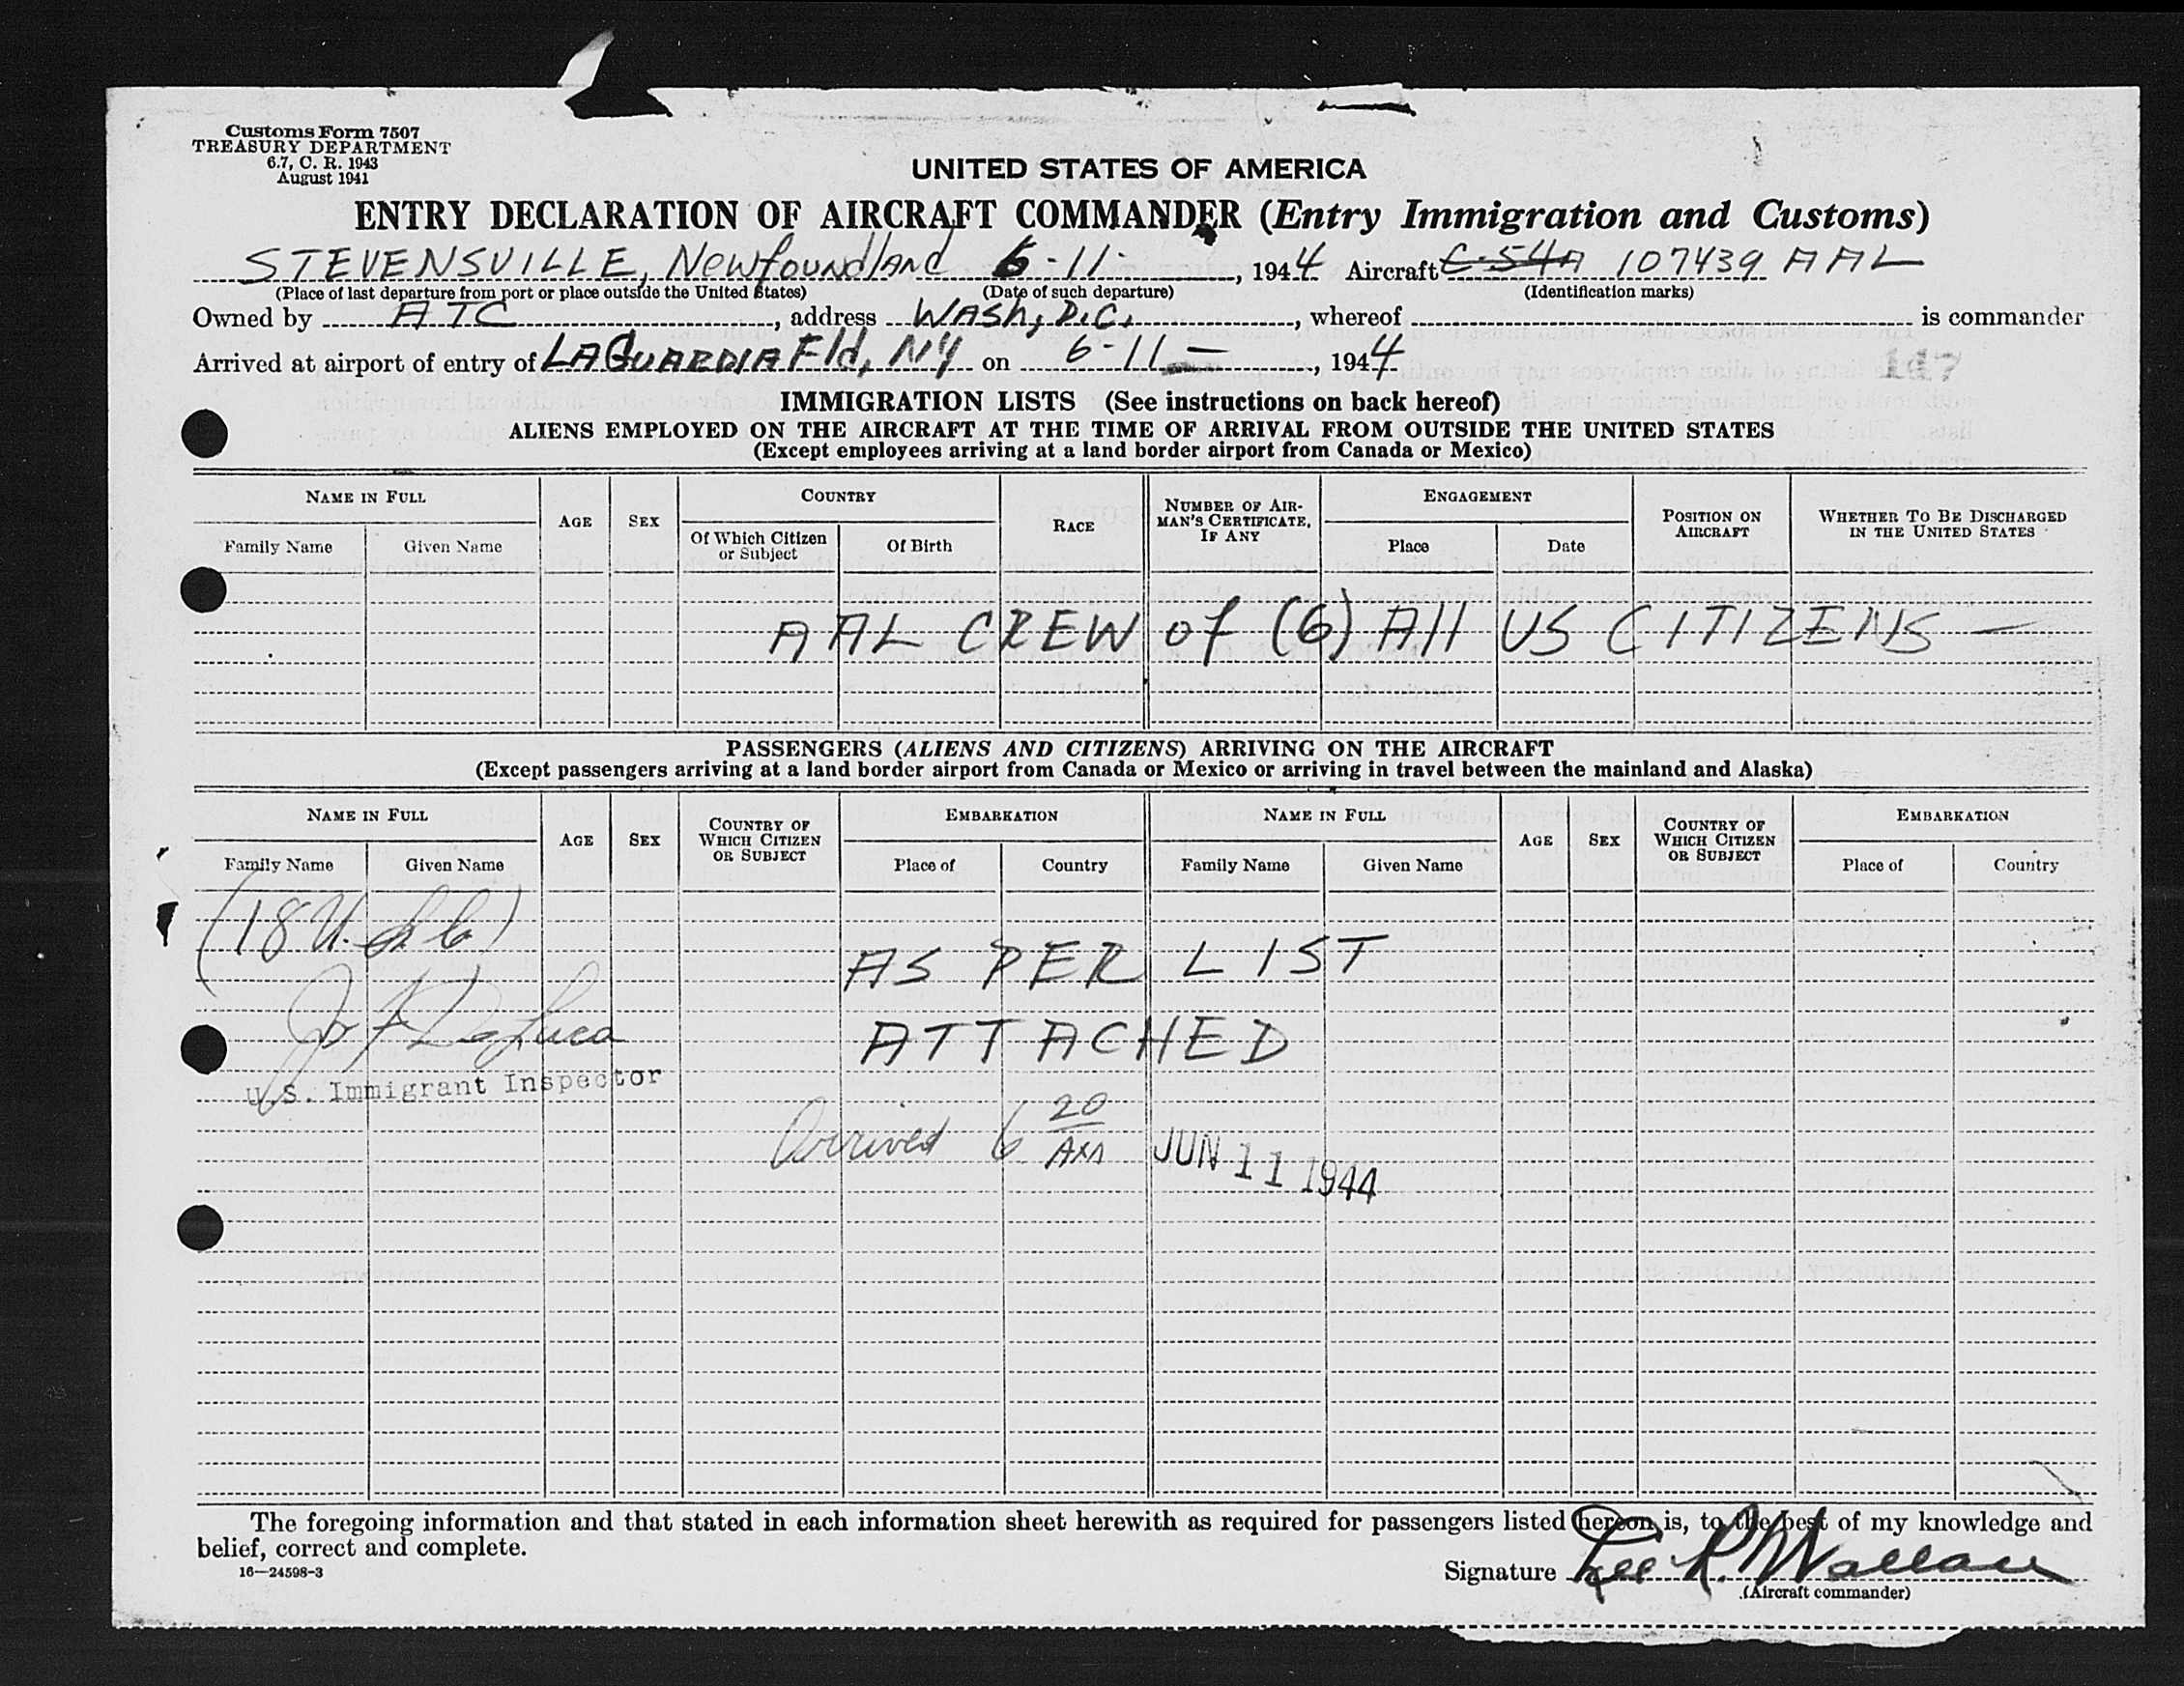 Customs Form 7507
TREASURY DEPARTMENT
6.7, C. R. 1943
August 1941
UNITED STATES OF AMERICA
ENTRY DECLARATION OF AIRCRAFT COMMANDER (Entry Immigration and Customs)
STEVENSVILLE, Newfoundland 6-11-, 1944 Aircraft C-54A 107439 AAL
(Place of last departure from port or place outside the United States) (Date of such departure) (Identification marks)
Owned by ATC, address WASh, D.C., whereof is commander
Arrived at airport of entry of LAGUARDIA Fld, NY on 6-11-, 1944
147
IMMIGRATION LISTS (See instructions on back hereof)
ALIENS EMPLOYED ON THE AIRCRAFT AT THE TIME OF ARRIVAL FROM OUTSIDE THE UNITED STATES
(Except employees arriving at a land border airport from Canada or Mexico)
NAME IN FULL AGE SEX COUNTRY RACE NUMBER OF AIRMAN'S CERTIFICATE, IF ANY ENGAGEMENT POSITION ON AIRCRAFT WHETHER TO BE DISCHARGED IN THE UNITED STATES
Family Name Given Name Of Which Citizen or Subject Of Birth Place Date
AAL CREW of (6) All US CITIZENS —
PASSENGERS (ALIENS AND CITIZENS) ARRIVING ON THE AIRCRAFT
(Except passengers arriving at a land border airport from Canada or Mexico or arriving in travel between the mainland and Alaska)
NAME IN FULL AGE SEX COUNTRY OF WHICH CITIZEN OR SUBJECT EMBARKATION NAME IN FULL AGE SEX COUNTRY OF WHICH CITIZEN OR SUBJECT EMBARKATION
Family Name Given Name Place of Country Family Name Given Name Place of Country
(18 U.
AS PER LIST
ATTACHED
U.S. Immigrant Inspector
Arrived 6 20 AM JUN 11 1944
The foregoing information and that stated in each information sheet herewith as required for passengers listed hereon is, to the best of my knowledge and
belief, correct and complete.
16—24598-3
Signature Lee K. Wallace
(Aircraft commander)